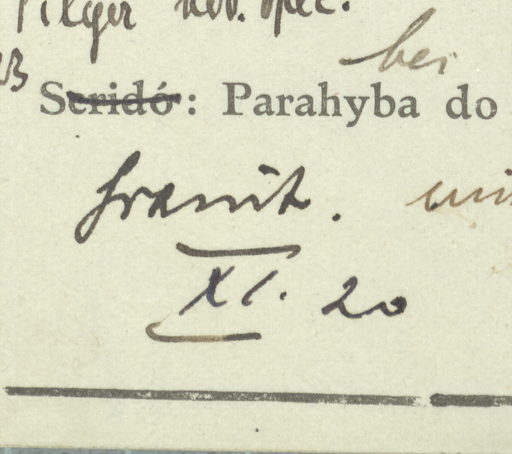 Pilger nov. spec.
bei
Seridó : Parahyba do
Granit.
XI. 20